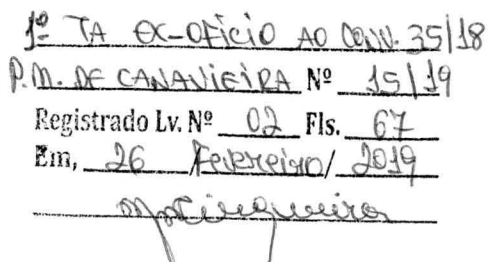 1º TA EX-OFICIO AO CONV. 35/18
P.M. DE CANAVIEIRA Nº 15/19
Registrado Lv. Nº 02 Fls. 67
Em, 26 / Fevereiro / 2019